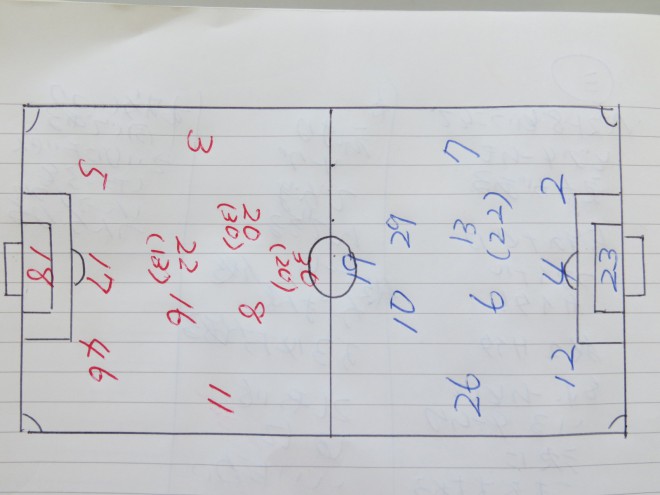 3
5
20
(30)
30
(20)
22
(13)
18
17
16
8
46
11
7
2
29
13
(22)
19
4
23
10
6
12
26